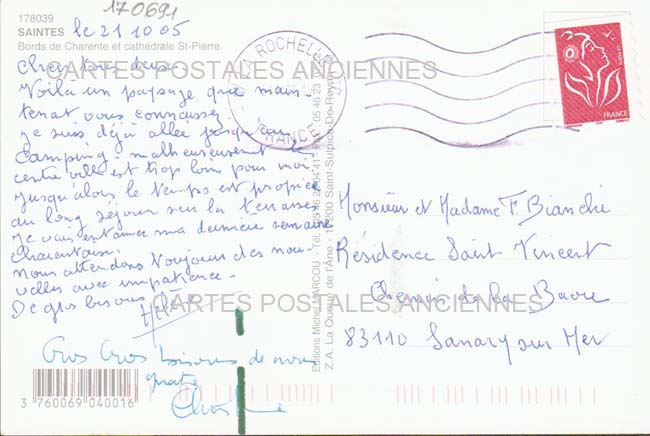 170691
178039
SAINTES le 21 10 05
Bords de Charente et cathédrale St-Pierre.
Chers tous deux
CARTES POSTALES ANCIENNES
Voilà un paysage que main-
tenant vous connaissez.
Je suis déjà allée jusqu'au
camping - malheureusement le
centre ville est trop loin pour moi,
Jusqu'alors le temps est propice
au long séjour sur la terrasse
Je vais entamer ma dernière semaine
charentaise.
Nous attendons toujours des nou-
velles avec impatience.
De gros bisous
CARTES POSTALES ANCIENNES
Gros Gros bisous de nous
quatre
Christine
3 760069 040016
Editions Michel MARCOU - Tél.
Z.A. La Queue de l'Âne - 17200 Saint-Sulpice-De-Royan
LA ROCHELLE
FRANCE
FRANCE
Monsieur et Madame F. Bianchi
Résidence Saint Vincent
Chemin de la Baou
83110 Sanary sur Mer